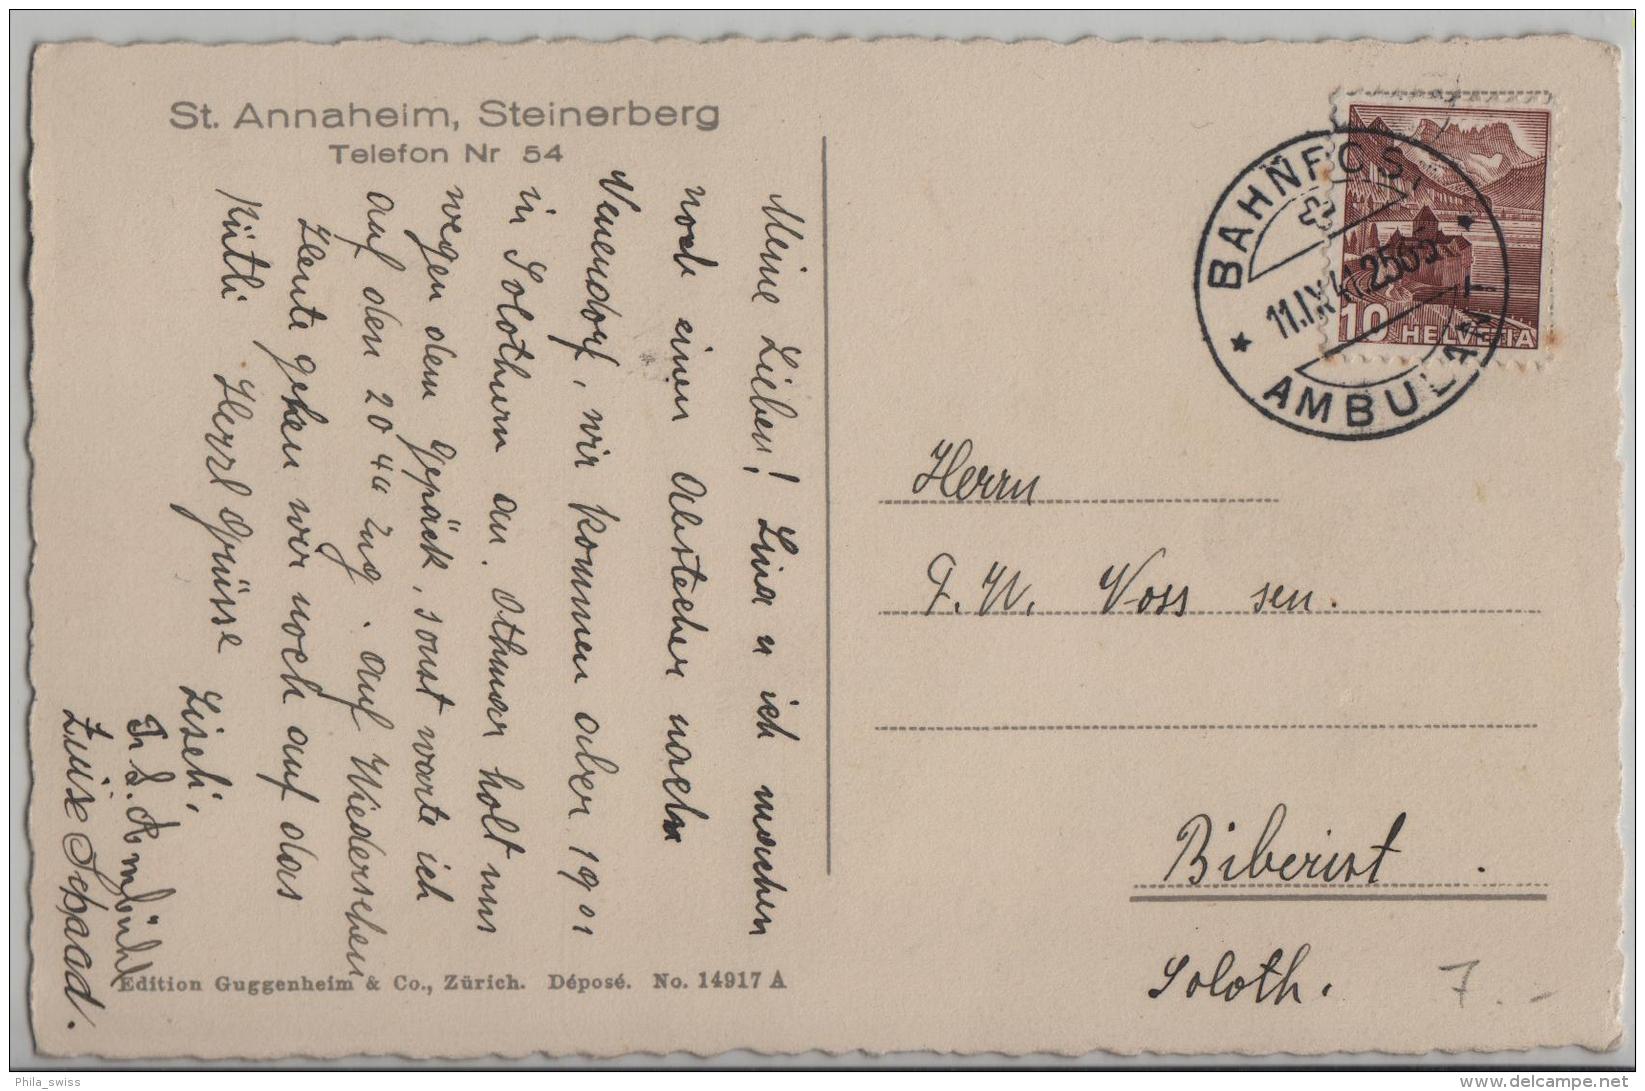 St. Annaheim, Steinerberg
Telefon Nr 54
Meine Lieben! Lina u ich machen
noch einen Abstecher nach
Neuendorf, wir kommen aber 19 01
in Solothurn an. Othmar holt uns
wegen dem Gepäck, sonst warte ich
auf den 20 40 Zug. Auf Wiedersehen
Heute gehen wir noch auf das
Rütli Herzl Grüsse
Liseli,
Luise Schaad.
Edition Guggenheim & Co., Zürich. Déposé. No. 14917 A
BAHNPOST
11.IX.41.
AMBULANT
10 HELVETIA
Herrn
F. W. Voss sen.
Biberist.
Soloth.
7.-
Phila_swiss
delcampe.net